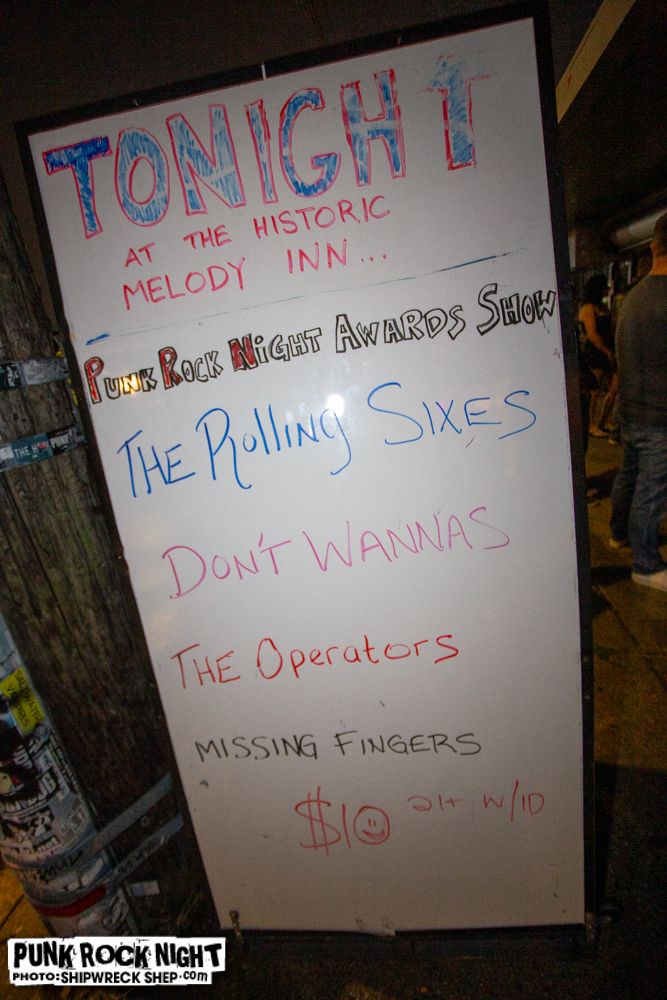 TONIGHT
AT THE HISTORIC
MELODY INN...
PUNK ROCK NIGHT AWARDS SHOW
THE ROLLING SIXES
DON'T WANNAS
THE OPERATORS
MISSING FINGERS
$10 21+ W/ID
PUNK ROCK NIGHT
PHOTO: SHIPWRECK SHEP.com